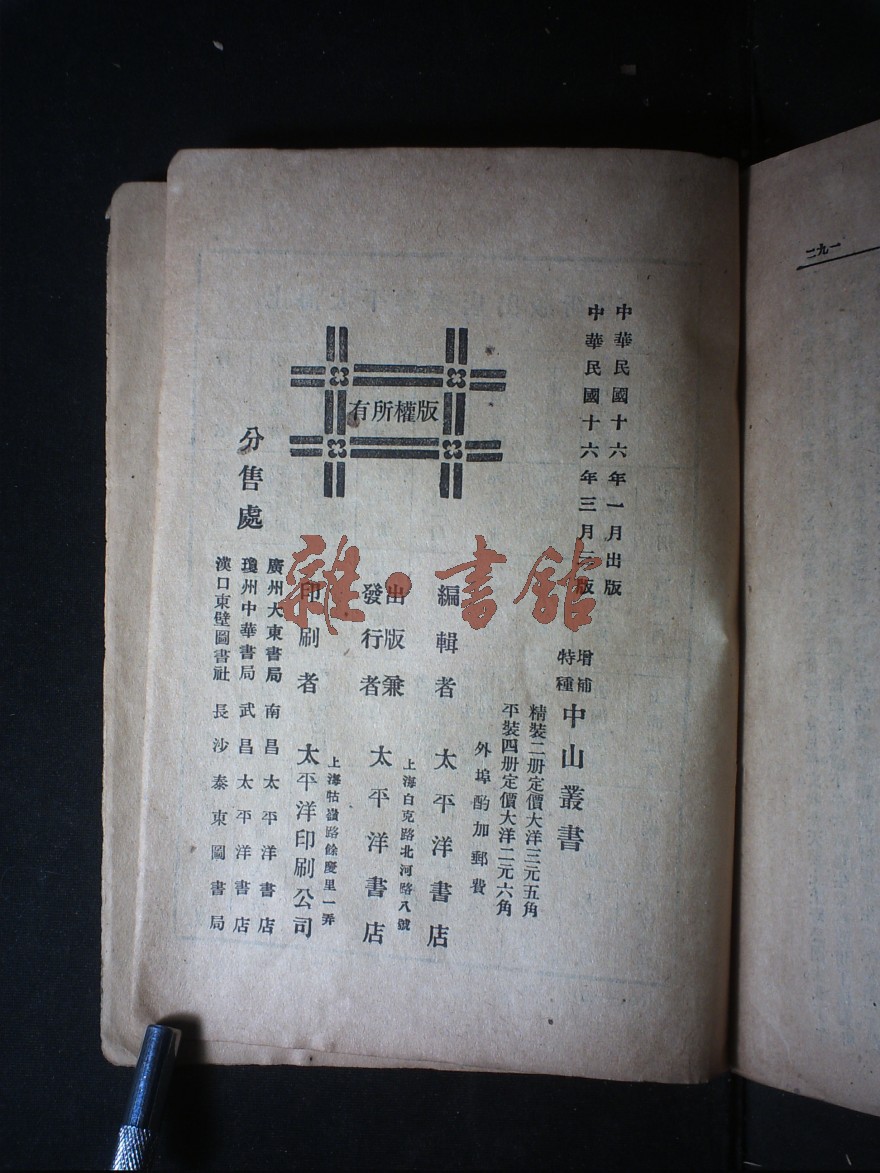 二九一
中華民國十六年一月出版
中華民國十六年三月三版
增補
特種
中山叢書
精裝二册定價大洋三元五角
平裝四册定價大洋二元六角
外埠酌加郵費
版權所有
編輯者 太平洋書店
上海白克路北河路八號
出版兼
發行者 太平洋書店
上海牯嶺路餘慶里一弄
印刷者 太平洋印刷公司
分售處
廣州大東書局 南昌太平洋書店
瓊州中華書局 武昌太平洋書店
漢口東壁圖書社 長沙泰東圖書局
雜·書館